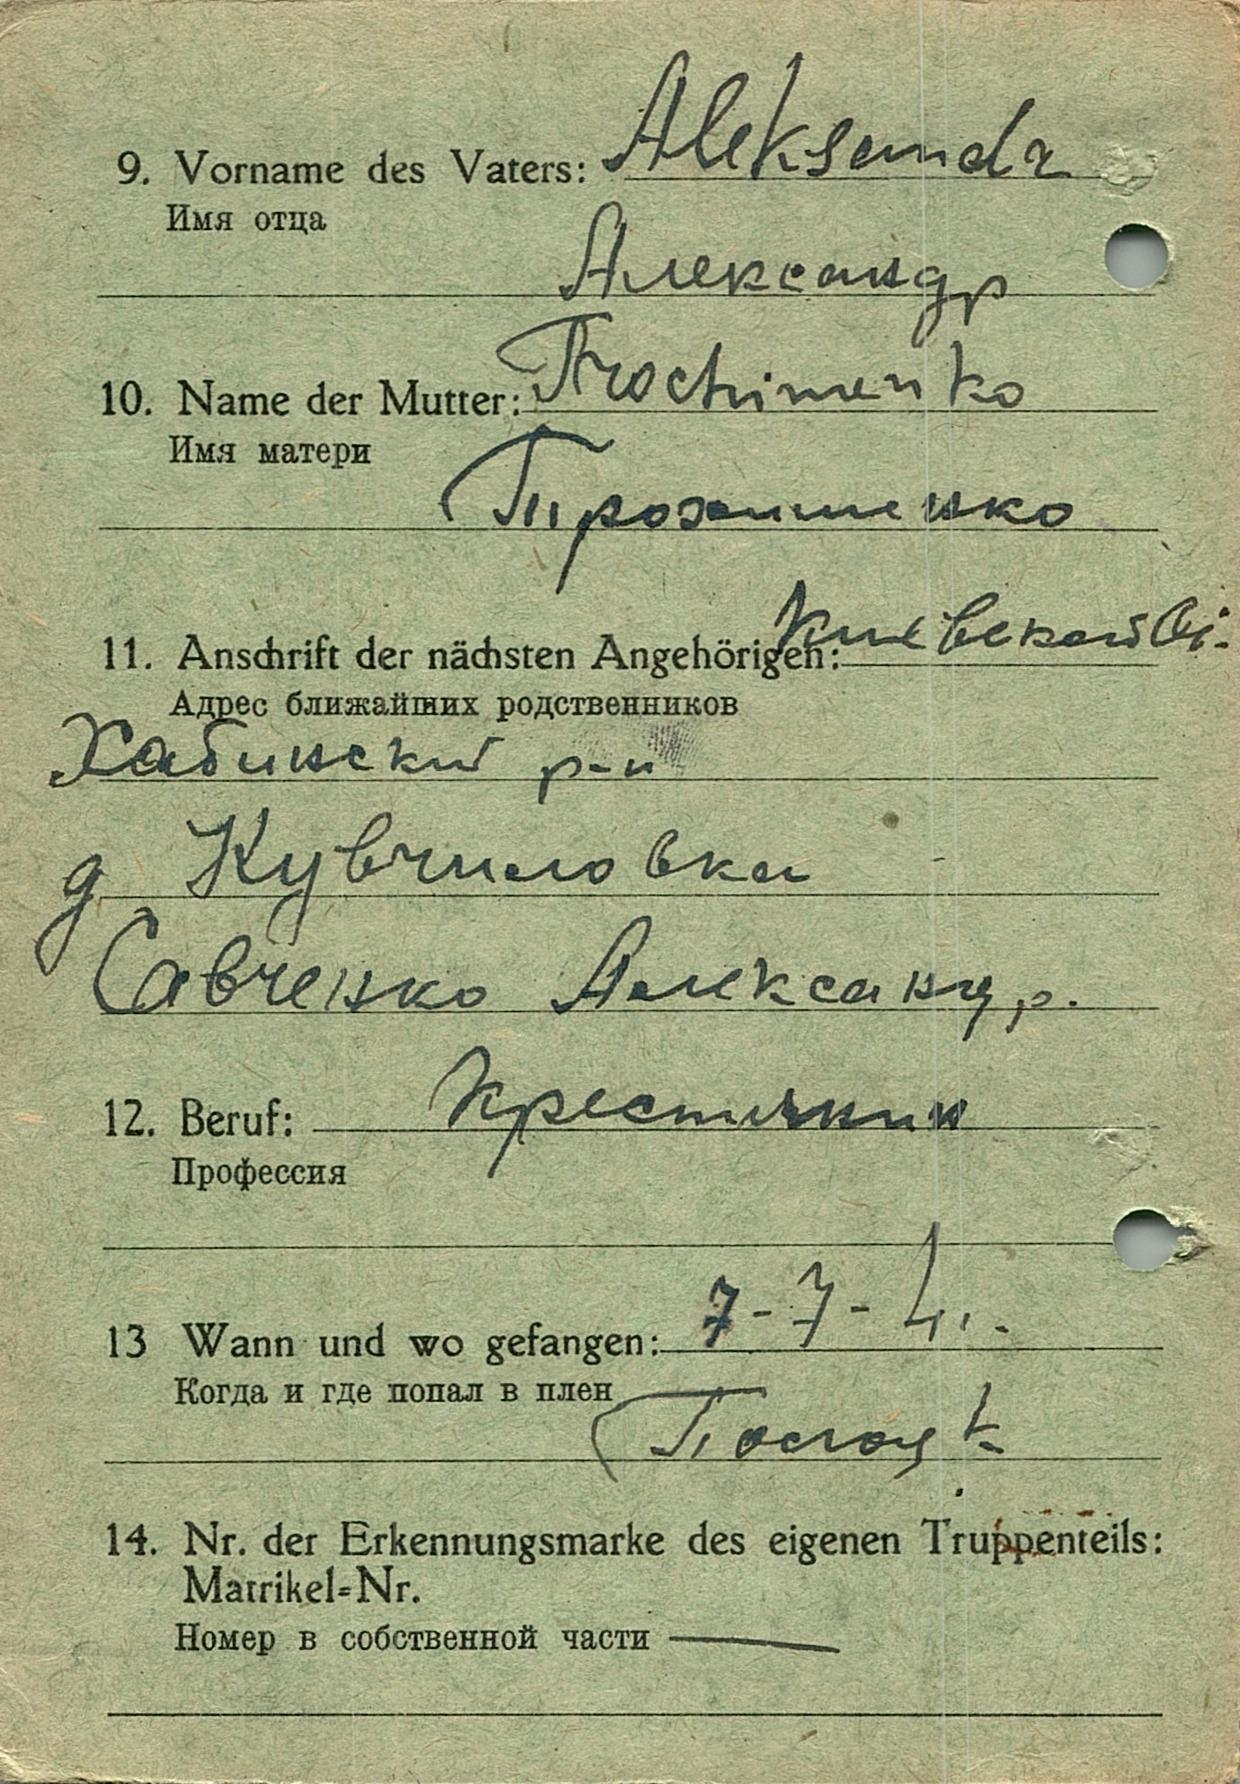 9. Vorname des Vaters: Aleksandr
Имя отца
Александр
10. Name der Mutter: Trochimenko
Имя матери
Трохименко
11. Anschrift der nächsten Angehörigen: Киевской Об.
Адрес ближайших родственников
Хабинский р-н
д Кувчиловка
Савченко Александр.
12. Beruf: крестянин
Профессия
13 Wann und wo gefangen: 7-7-41.
Когда и где попал в плен
14. Nr. der Erkennungsmarke des eigenen Truppenteils:
Matrikel=Nr.
Номер в собственной части —